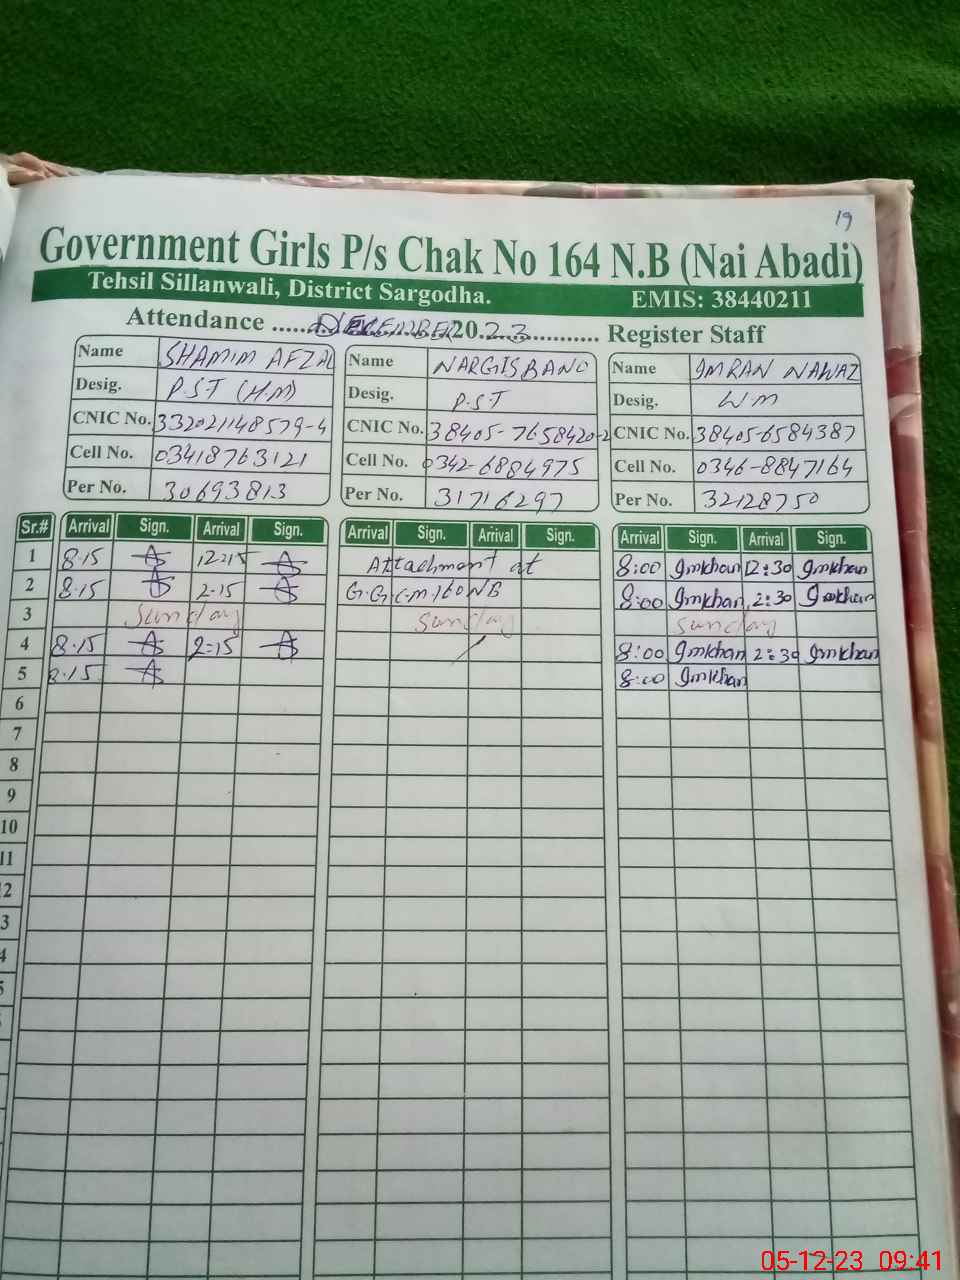 19
Government Girls P/s Chak No 164 N.B (Nai Abadi)
Tehsil Sillanwali, District Sargodha.
EMIS: 38440211
Attendance ......DECEMBER 2023............... Register Staff
Name SHAMIM AFZAL
Desig. P.S.T (H.M)
CNIC No. 332021148579-4
Cell No. 03418763121
Per No. 30693813
Name NARGIS BANO
Desig. P.S.T
CNIC No. 38405-7658420-2
Cell No. 0342-6884975
Per No. 31716297
Name IMRAN NAWAZ
Desig. W M
CNIC No. 38405-6584387
Cell No. 0346-8847164
Per No. 32128750
Sr.# Arrival Sign. Arrival Sign. Arrival Sign. Arrival Sign. Arrival Sign. Arrival Sign.
1 8.15 12:15 Attachment at 8:00 Imkhan 12:30 Imkhan
2 8.15 2.15 G.G.C.M.160NB 8:00 Imkhan 2:30 Imkhan
3 Sunday Sunday Sunday
4 8.15 2:15 8:00 Imkhan 2:30 Imkhan
5 8.15 8:00 Imkhan
6
7
8
9
10
11
12
3
4
5
05-12-23 09:41